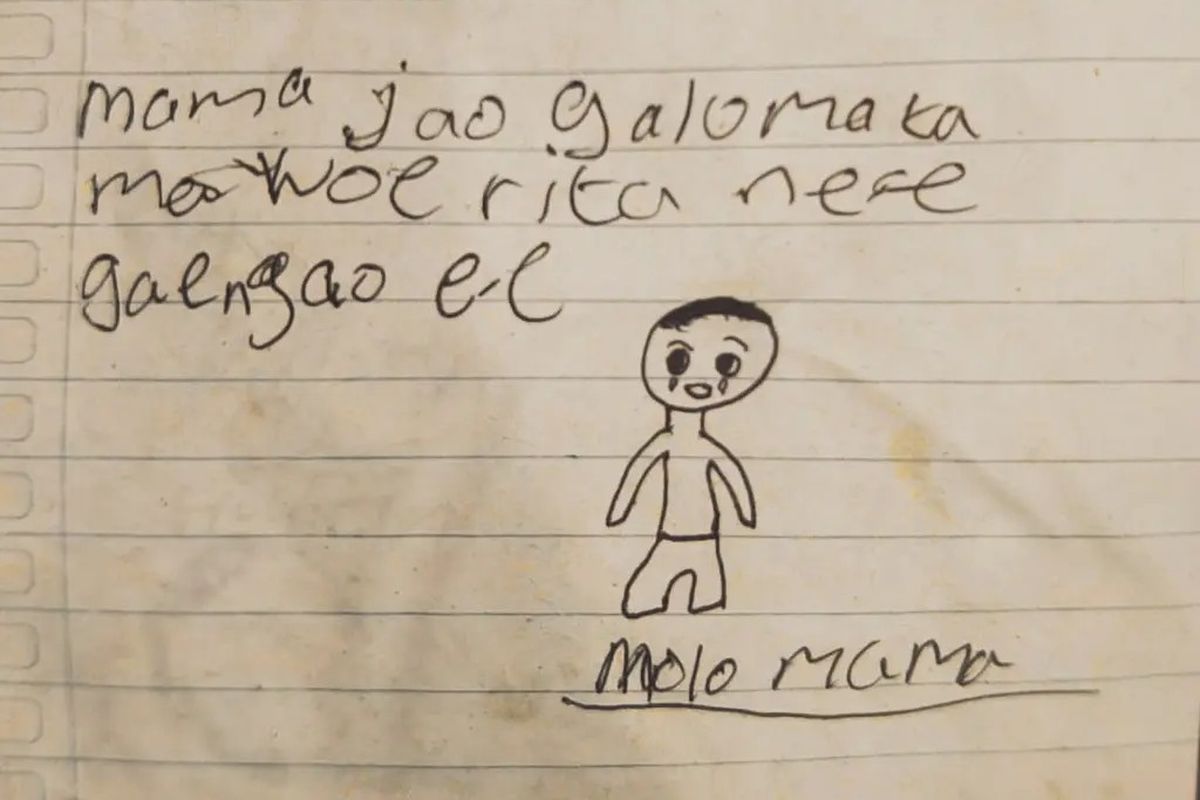 mama jao galo mata
mae woe rita nee
gaengao ee
molo mama